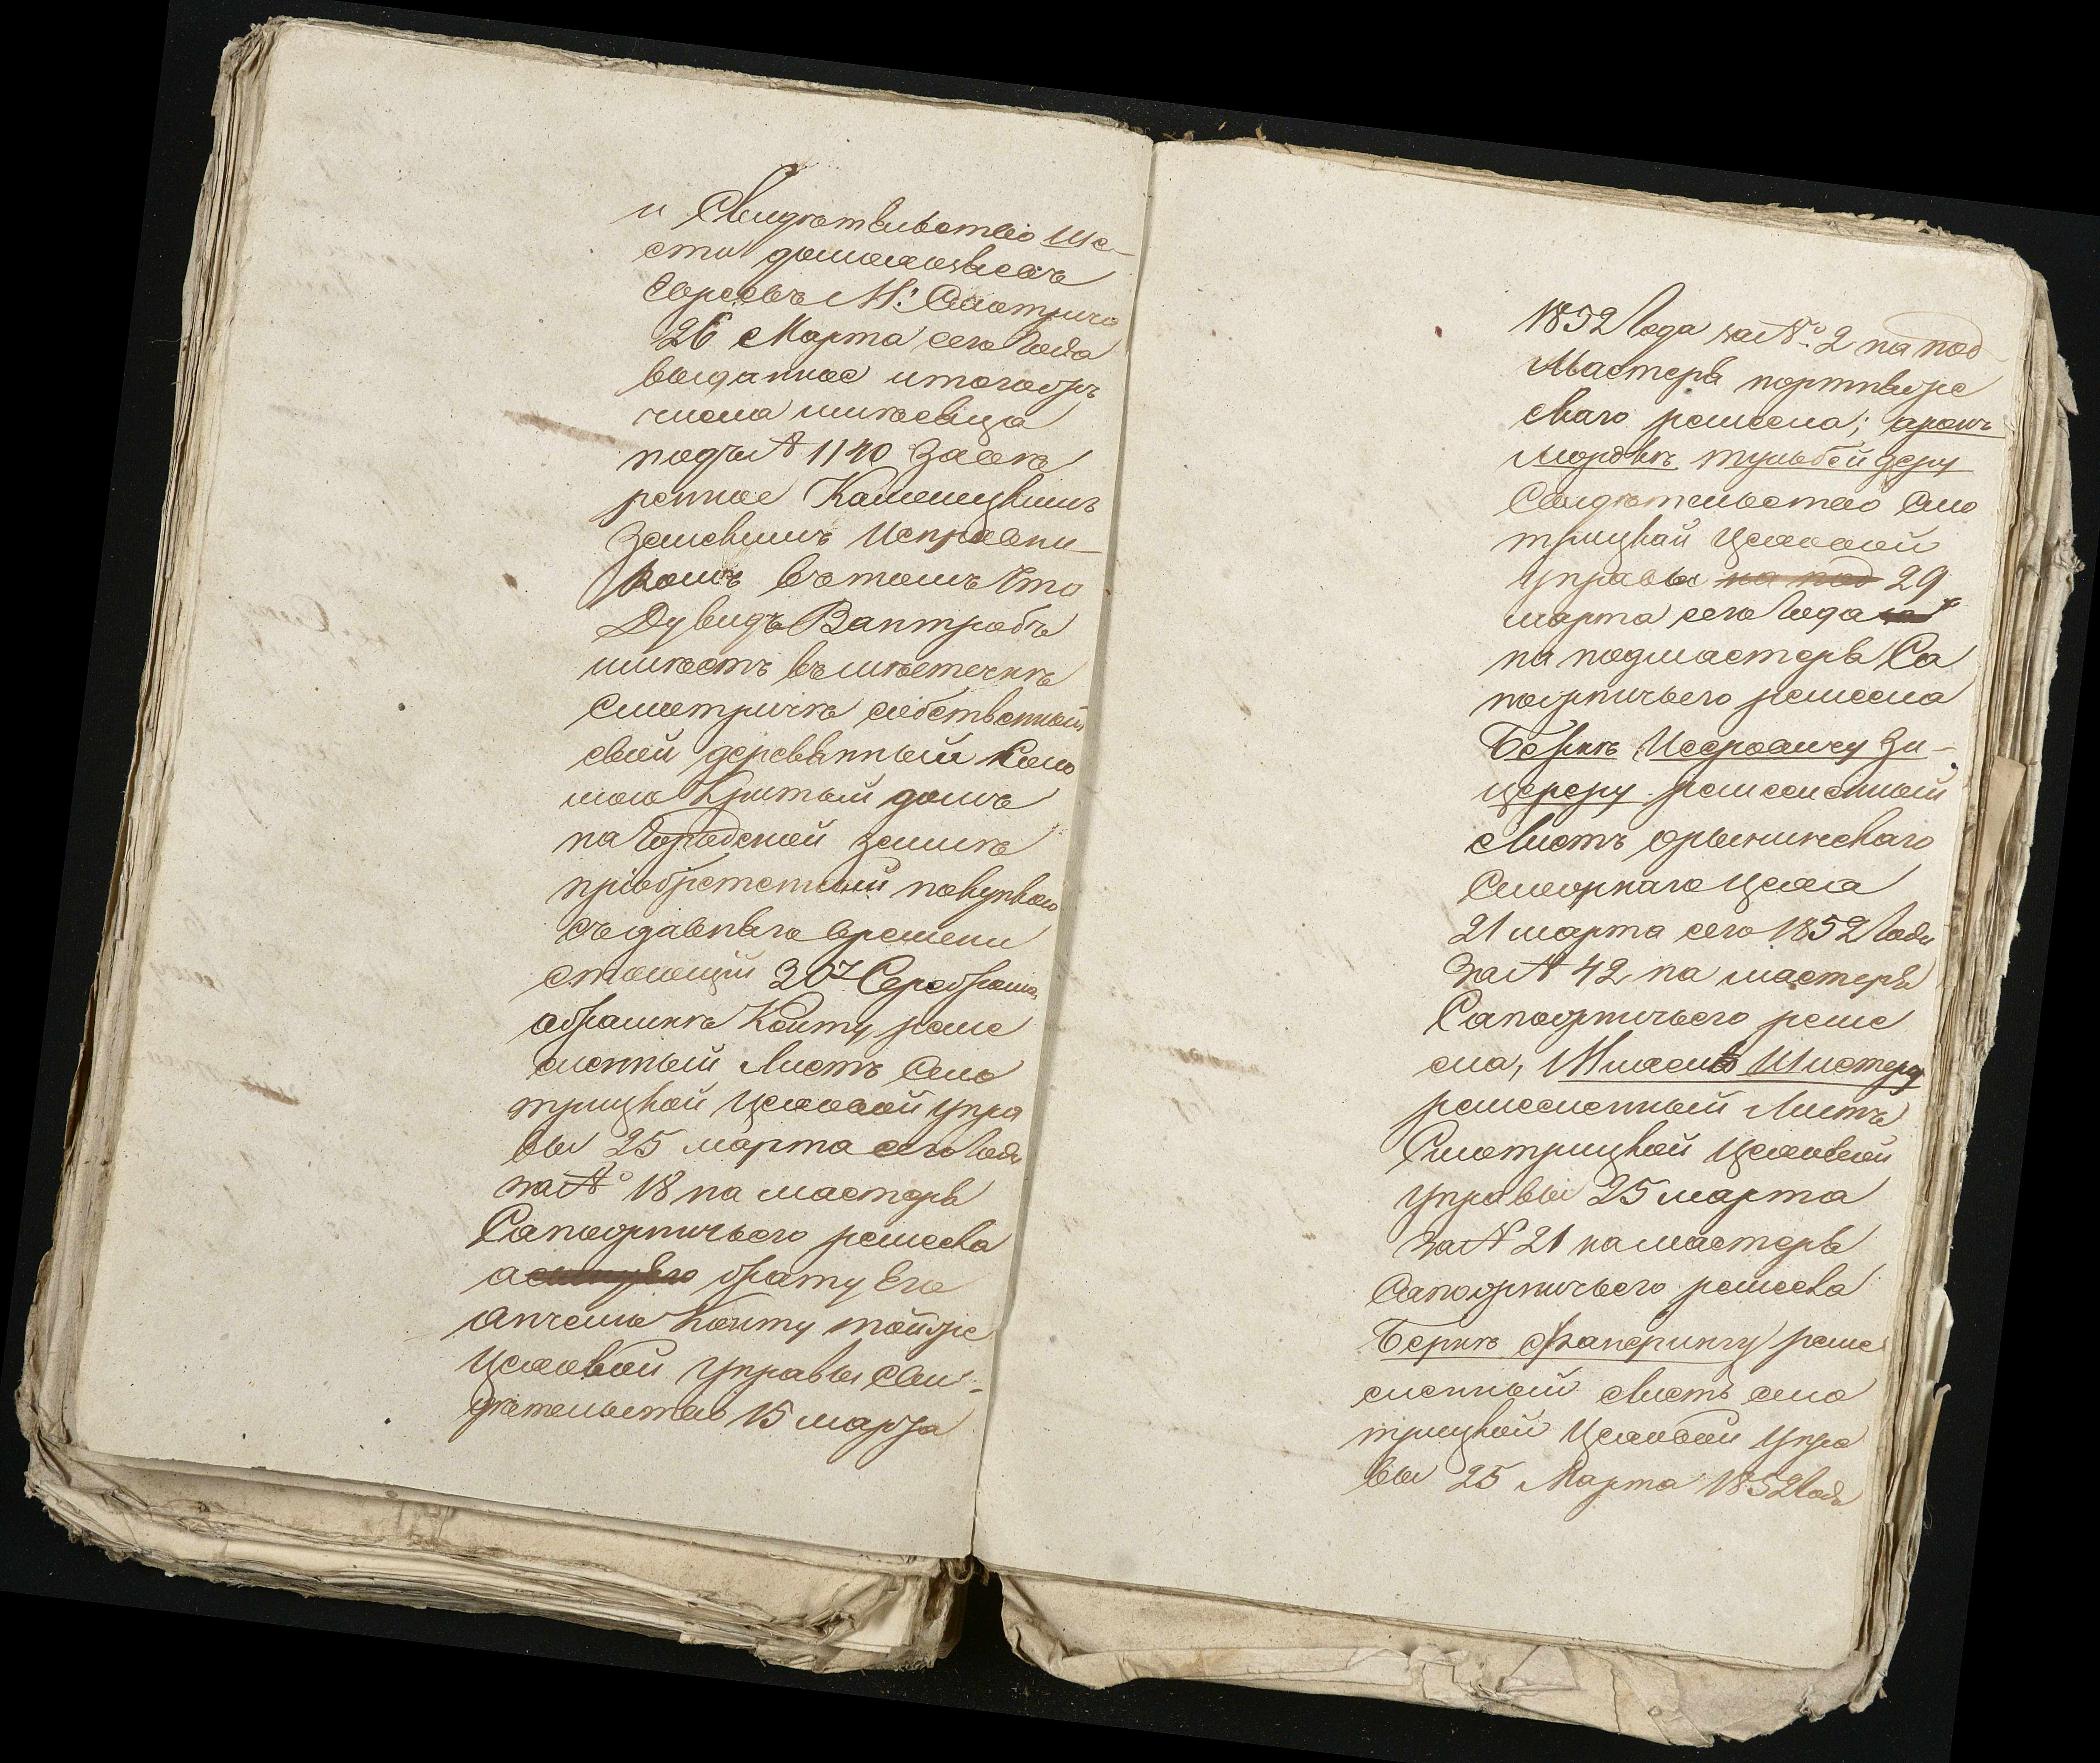 и Свидѣтельство Ше-
сти домохозяевъ
Евреевъ М: Смотрича
26 Марта сего года
выданное итогожъ
числа мѣсяца
подъ № 1140 Завѣ
ренное Каменецкимъ
Земскимъ Исправни-
комъ вътомъ Что
Дувидъ Вантробъ
имѣетъ вмѣстечкѣ
Смотричѣ собственный
свой деревянный Соло
мою Крытый домъ
на Городской земли
пріобретенный покупкою
съ давняго времени
стоющій 30 Серебромъ,
Абрамкѣ Коиту реме
сленный Листъ Смо
трицкой Цеховой Упра
вы 25 марта сего года
за № 18 на мастера
Сапожничьего ремесла
а брату Его
Анчелю Коиту тойже
Цеховой Управы Сви-
дѣтельство 15 марта
1852 года за № 2 на под
Мастера портняже
скаго ремесла; аронъ
Мордкѣ Тульбейдеру
Свидѣтельство Смо
трицкой Цеховой
Управы на под 29
марта сего года за
на подмастера Са
пожничьего ремесла
Беркѣ Исеровичу Зи-
церу ремесленный
Листъ
Сможнаго Цеха
21 марта сего 1852 года
за № 42 на мастера
Сапожничьего реме
сла, Шистеру
ремесленный Листъ
Смотрицкой Цеховой
Управы 25 марта
за № 21 на мастера
Сапожничьего ремесла
Беркѣ реме
сленный Листъ Смо
трицкой Цеховой Упра
вы 25 Марта 1852 года